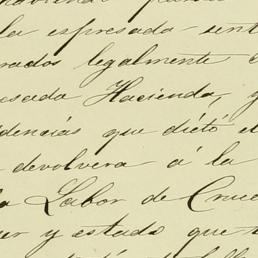 la espresada sent
rados legalmente
esada Hacienda, y
dencias que dictó el
devolvera á la
Labor de Cruc
y estado que